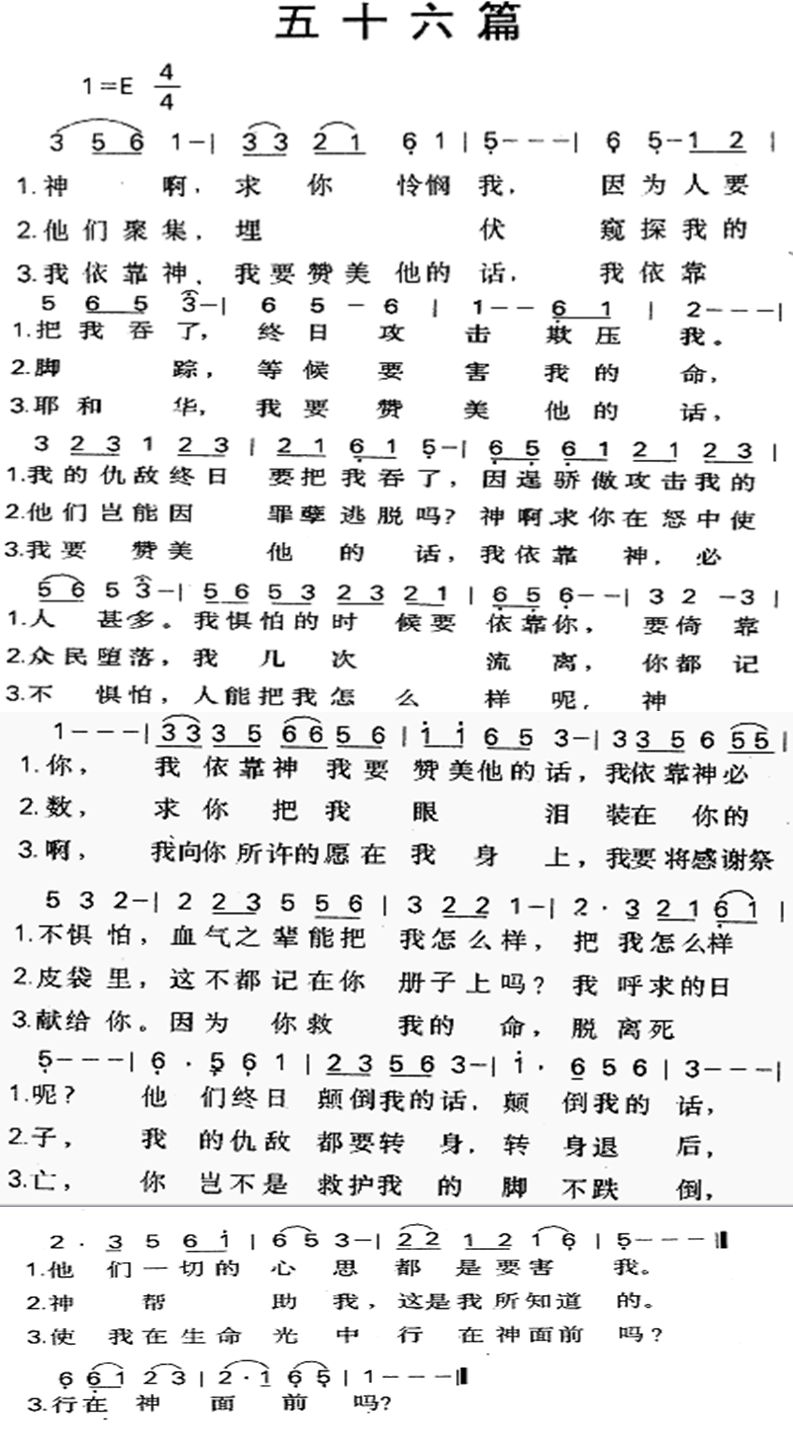 五十六篇
1=E 4/4
3 5 6 1-| 3 3 2 1 6 1 | 5---| 6 5-1 2 |
1.神啊，求你怜悯我，因为人要
2.他们聚集，埋伏窥探我的
3.我依靠神，我要赞美他的话，我依靠
5 6 5 3-| 6 5 - 6 | 1--6 1 | 2---|
1.把我吞了，终日攻击欺压我。
2.脚踪，等候要害我的命，
3.耶和华，我要赞美他的话，
3 2 3 1 2 3 | 2 1 6 1 5-| 6 5 6 1 2 1 2 3 |
1.我的仇敌终日要把我吞了，因逞骄傲攻击我的
2.他们岂能因罪孽逃脱吗？神啊，求你在怒中使
3.我要赞美他的话，我依靠神，必
5 6 5 3-| 5 6 5 3 2 3 2 1 | 6 5 6--| 3 2 -3 |
1.人甚多。我惧怕的时候要依靠你，要倚靠
2.众民堕落，我几次流离，你都记
3.不惧怕，人能把我怎么样呢，神
1---| 3 3 3 5 6 6 5 6 | 1 1 6 5 3-| 3 3 5 6 5 5 |
1.你，我依靠神我要赞美他的话，我依靠神必
2.数，求你把我眼泪装在你的
3.啊，我向你所许的愿在我身上，我要将感谢祭
5 3 2-| 2 2 3 5 5 6 | 3 2 2 1-| 2· 3 2 1 6 1 |
1.不惧怕，血气之辈能把我怎么样，把我怎么样
2.皮袋里，这不都记在你册子上吗？我呼求的日
3.献给你。因为你救我的命，脱离死
5---| 6· 5 6 1 | 2 3 5 6 3-| 1· 6 5 6 | 3---|
1.呢？他们终日颠倒我的话，颠倒我的话，
2.子，我的仇敌都要转身，转身退后，
3.亡，你岂不是救护我的脚不跌倒，
2· 3 5 6 1 | 6 5 3-| 2 2 1 2 1 6 | 5---‖
1.他们一切的心思都是要害我。
2.神帮助我，这是我所知道的。
3.使我在生命光中行在神面前吗？
6 6 1 2 3 | 2·1 6 5 | 1---‖
3.行在神面前吗？